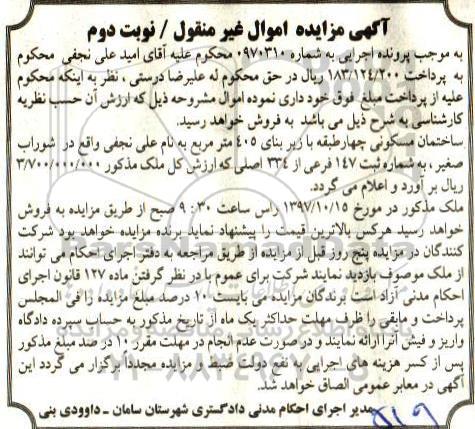 آگهی مزایده اموال غیر منقول / نوبت دوم
به موجب پرونده اجرایی به شماره ۰۹۷۰۳۱۰ محکوم علیه آقای امید علی نجفی محکوم
به پرداخت ۱۸۳/۱۲۴/۲۰۰ ریال در حق محکوم له علیرضا درستی ، نظر به اینکه محکوم
علیه از پرداخت مبلغ فوق خود داری نموده اموال مشروحه ذیل که ارزش آن حسب نظریه
کارشناسی به شرح ذیل می باشد به فروش خواهد رسید.
ساختمان مسکونی چهارطبقه با زیر بنای ۴۰۵ متر مربع به نام علی نجفی واقع در شوراب
صغیر ، به شماره ثبت ۱۴۷ فرعی از ۳۳۴ اصلی که ارزش کل ملک مذکور ۳/۷۰۰/۰۰۰/۰۰۰
ریال بر آورد و اعلام می گردد.
ملک مذکور در مورخ ۱۳۹۷/۱۰/۱۵ راس ساعت ۹:۳۰ صبح از طریق مزایده به فروش
خواهد رسید هرکس بالاترین قیمت را پیشنهاد نماید برنده مزایده خواهد بود شرکت
کنندگان در مزایده پنج روز قبل از مزایده از طریق مراجعه به دفتر اجرای احکام می توانند
از ملک موصوف بازدید نمایند شرکت برای عموم با در نظر گرفتن ماده ۱۲۷ قانون اجرای
احکام مدنی آزاد است برندگان مزایده می بایست ۱۰ درصد مبلغ مزایده را فی المجلس
پرداخت و مابقی را ظرف مهلت حداکثر یک ماه از تاریخ مذکور به حساب سپرده دادگاه
واریز و فیش آنرا ارائه نمایند و در صورت عدم انجام در مهلت مقرر ۱۰ در صد مبلغ مذکور
پس از کسر هزینه های اجرایی به نفع دولت ضبط و مزایده مجددا برگزار می گردد این
آگهی در معابر عمومی الصاق خواهد شد.
مدیر اجرای احکام مدنی دادگستری شهرستان سامان - داوودی بنی